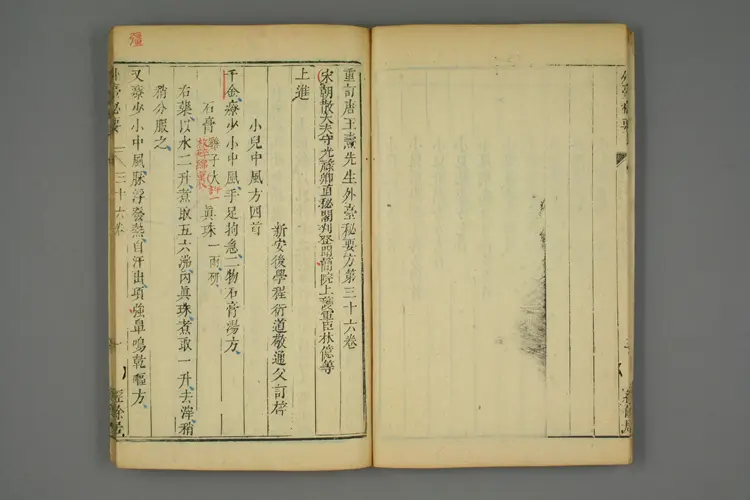 重訂唐王燾先生外臺秘要方第三十六卷
宋朝散大夫守光祿卿直秘閣判登聞簡院上護軍臣林億等
上進
新安後學程衍道敬通父訂梓
小兒中風方四首
千金療少小中風手足拘急二物石膏湯方
石膏雞子大一
真珠一兩研
右藥以水二升煮取五六沸內真珠煮取一升去滓稍
稍分服之
又療少小中風脈浮發熱自汗出項強鼻鳴乾嘔方
三十六卷
一
經餘居